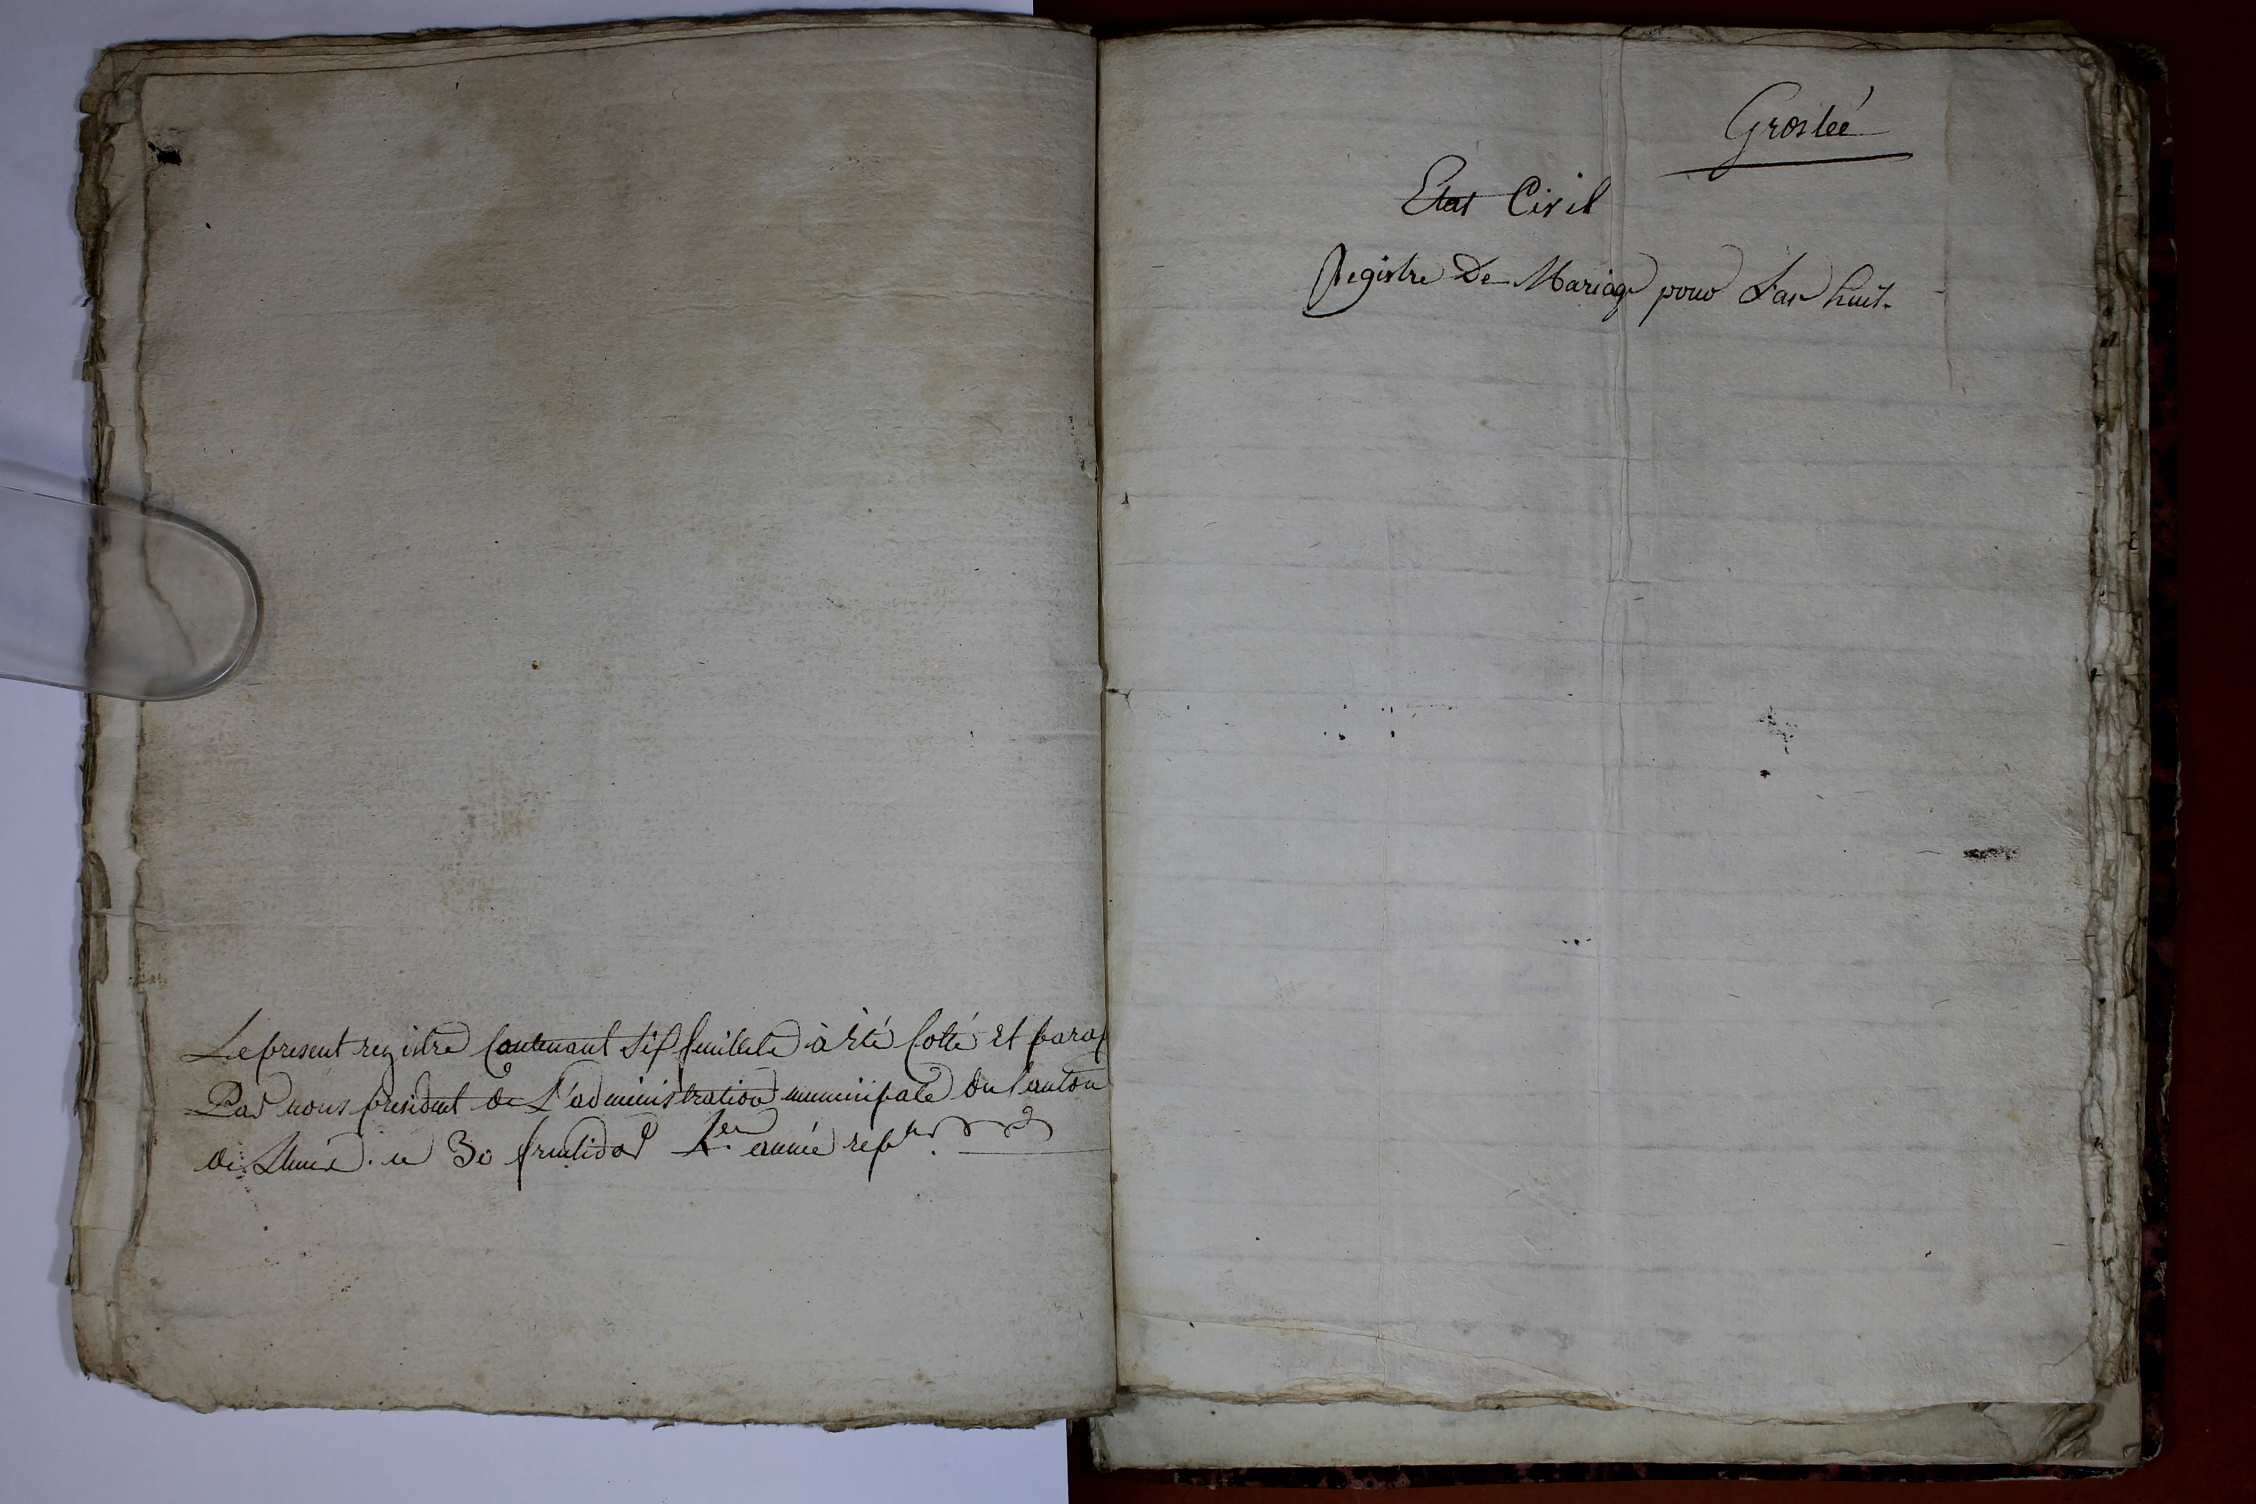 Le present registre contenant six feuillets à été Cotté et parap
Par nous president de L'administration municipale du Canton
de Lhuis. le 30 fructidor année rep.
Groslée
Etat Civil
Registre De Mariage pour L'an huit.